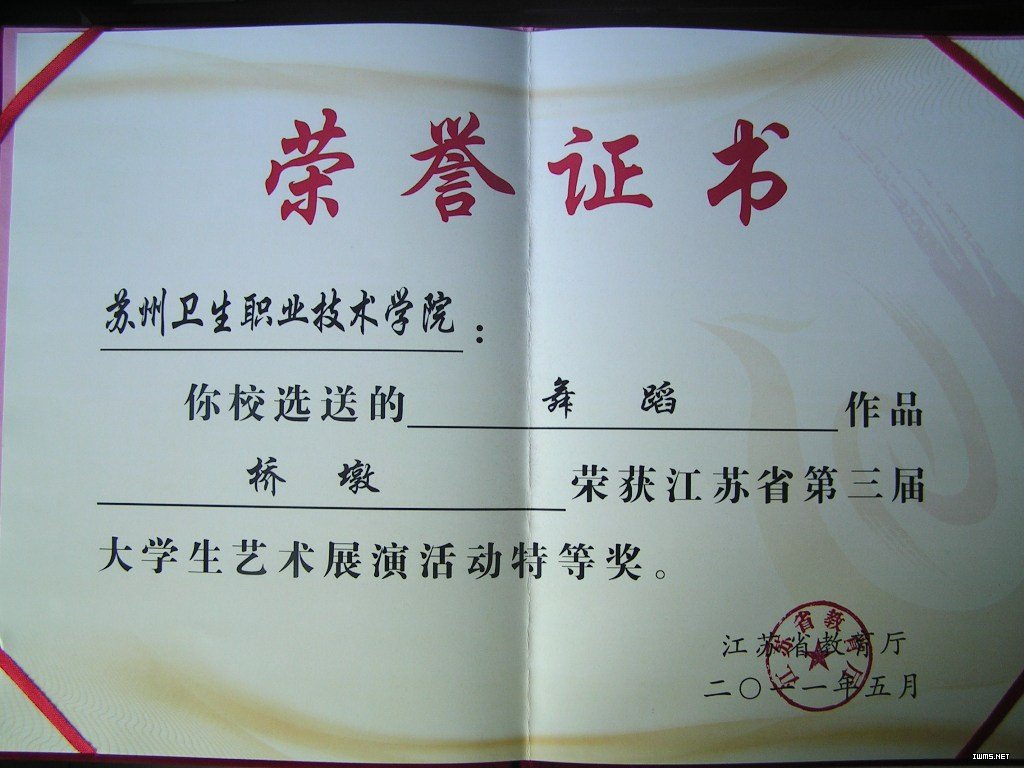 荣誉证书
苏州卫生职业技术学院：
你校选送的 舞 蹈 作品
桥 墩 荣获江苏省第三届
大学生艺术展演活动特等奖。
江苏省教育厅
江苏省教育厅
二〇一一年五月
IWMS.NET